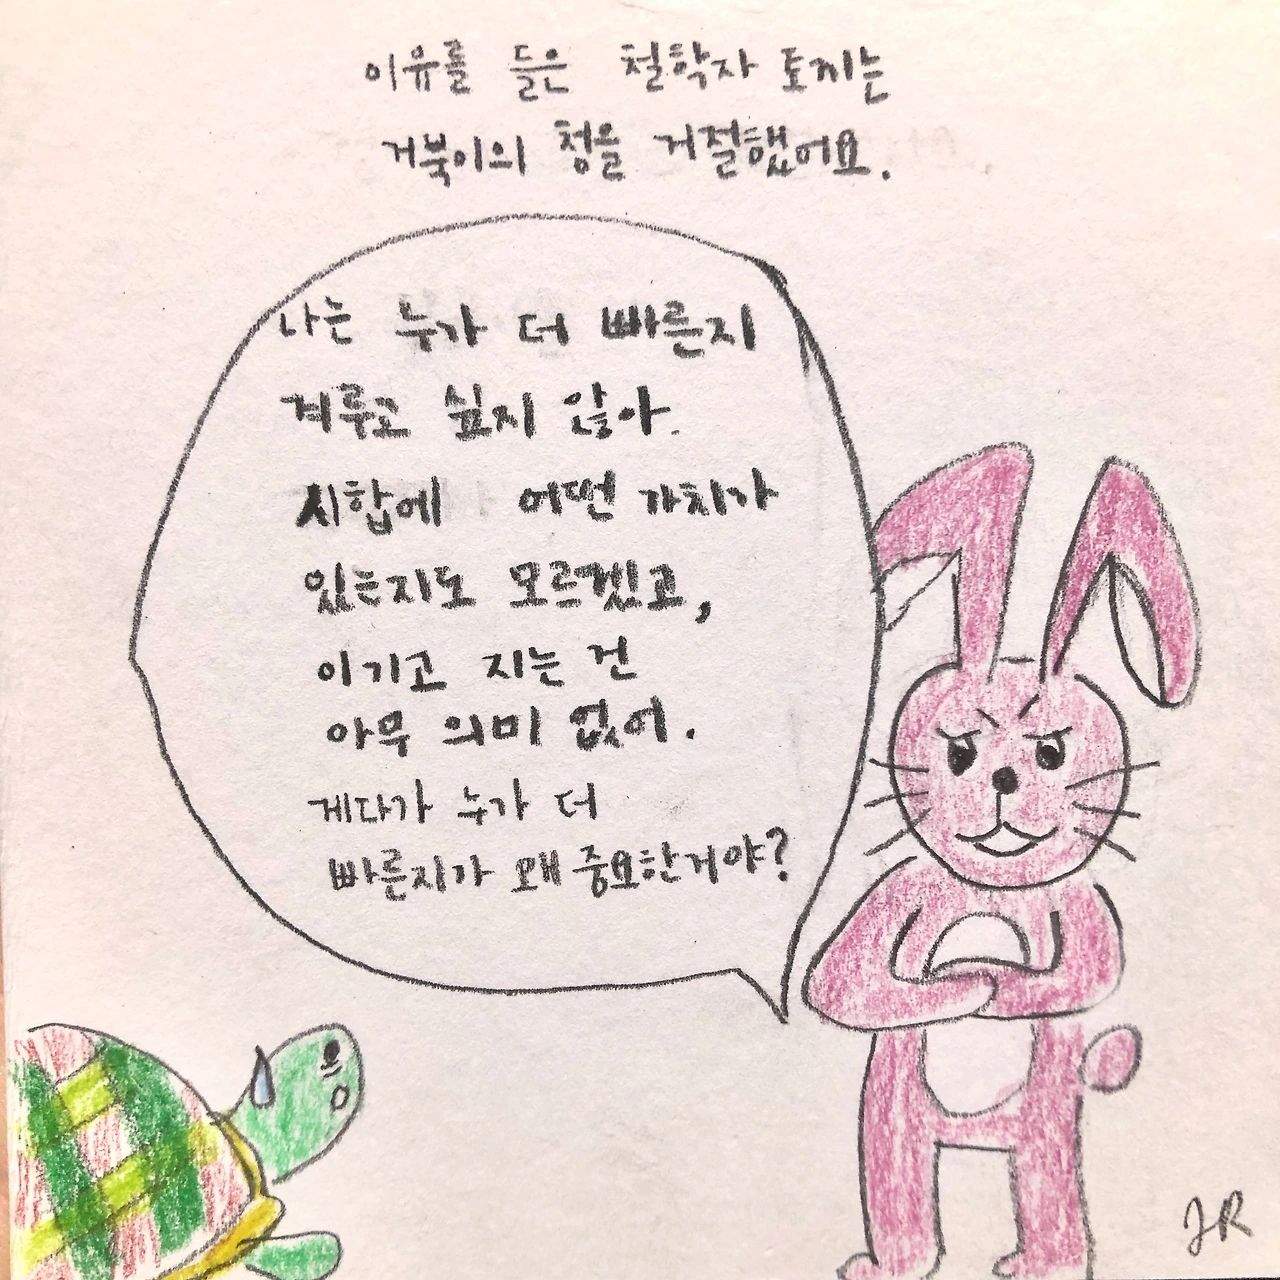 이유를 들은 철학자 토끼는
거북이의 청을 거절했어요.
나는 누가 더 빠른지
겨루고 싶지 않아.
시합에 어떤 가치가
있는지도 모르겠고,
이기고 지는 건
아무 의미 없어.
게다가 누가 더
빠른지가 왜 중요한거야?
JR